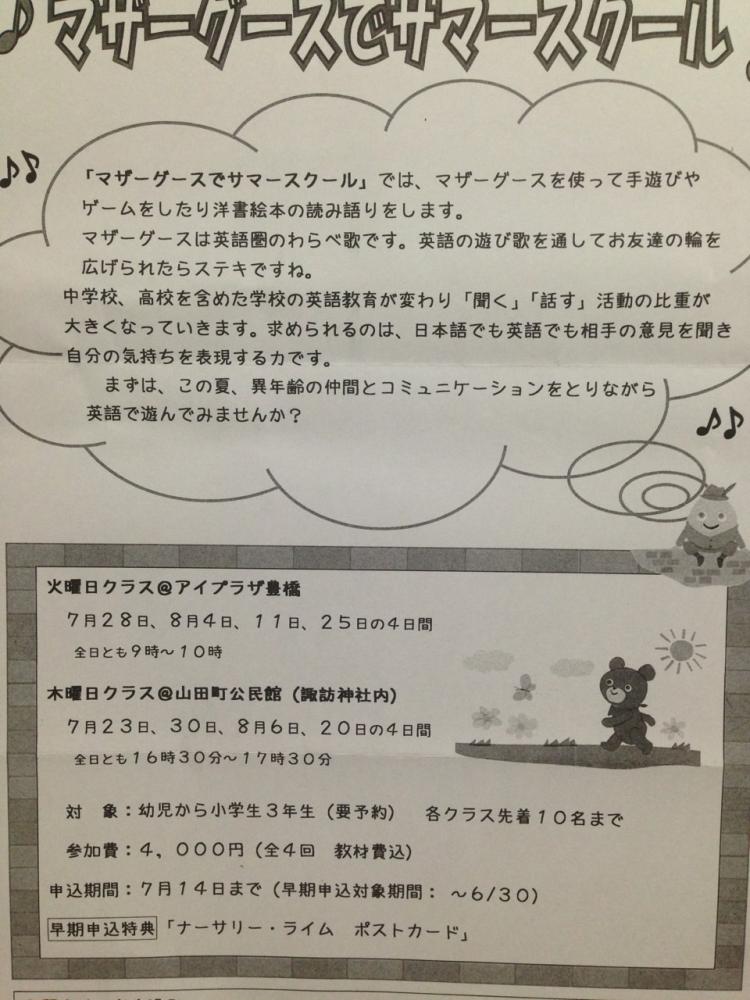 マザーグースでサマースクール
「マザーグースでサマースクール」では、マザーグースを使って手遊びや
ゲームをしたり洋書絵本の読み語りをします。
マザーグースは英語圏のわらべ歌です。英語の遊び歌を通してお友達の輪を
広げられたらステキですね。
中学校、高校を含めた学校の英語教育が変わり「聞く」「話す」活動の比重が
大きくなっていきます。求められるのは、日本語でも英語でも相手の意見を聞き
自分の気持ちを表現する力です。
まずは、この夏、異年齢の仲間とコミュニケーションをとりながら
英語で遊んでみませんか？
火曜日クラス@アイプラザ豊橋
７月２８日、８月４日、１１日、２５日の４日間
全日とも９時～１０時
木曜日クラス@山田町公民館（諏訪神社内）
７月２３日、３０日、８月６日、２０日の４日間
全日とも１６時３０分～１７時３０分
対　象：幼児から小学生３年生（要予約）　各クラス先着１０名まで
参加費：４，０００円（全４回　教材費込）
申込期間：７月１４日まで（早期申込対象期間：～6/30）
早期申込特典「ナーサリー・ライム　ポストカード」